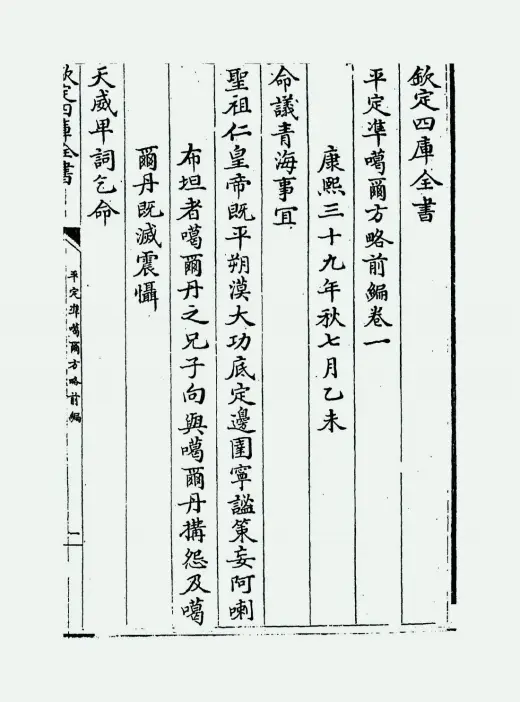 欽定四庫全書
平定準噶爾方略前編卷一
康熙三十九年秋七月乙未
命議青海事宜
聖祖仁皇帝既平朔漠大功底定邊圉寧謐策妄阿喇
布坦者噶爾丹之兄子向與噶爾丹搆怨及噶
爾丹既滅震懾
天威卑詞乞命
欽定四庫全書
平定準噶爾方略前編
一